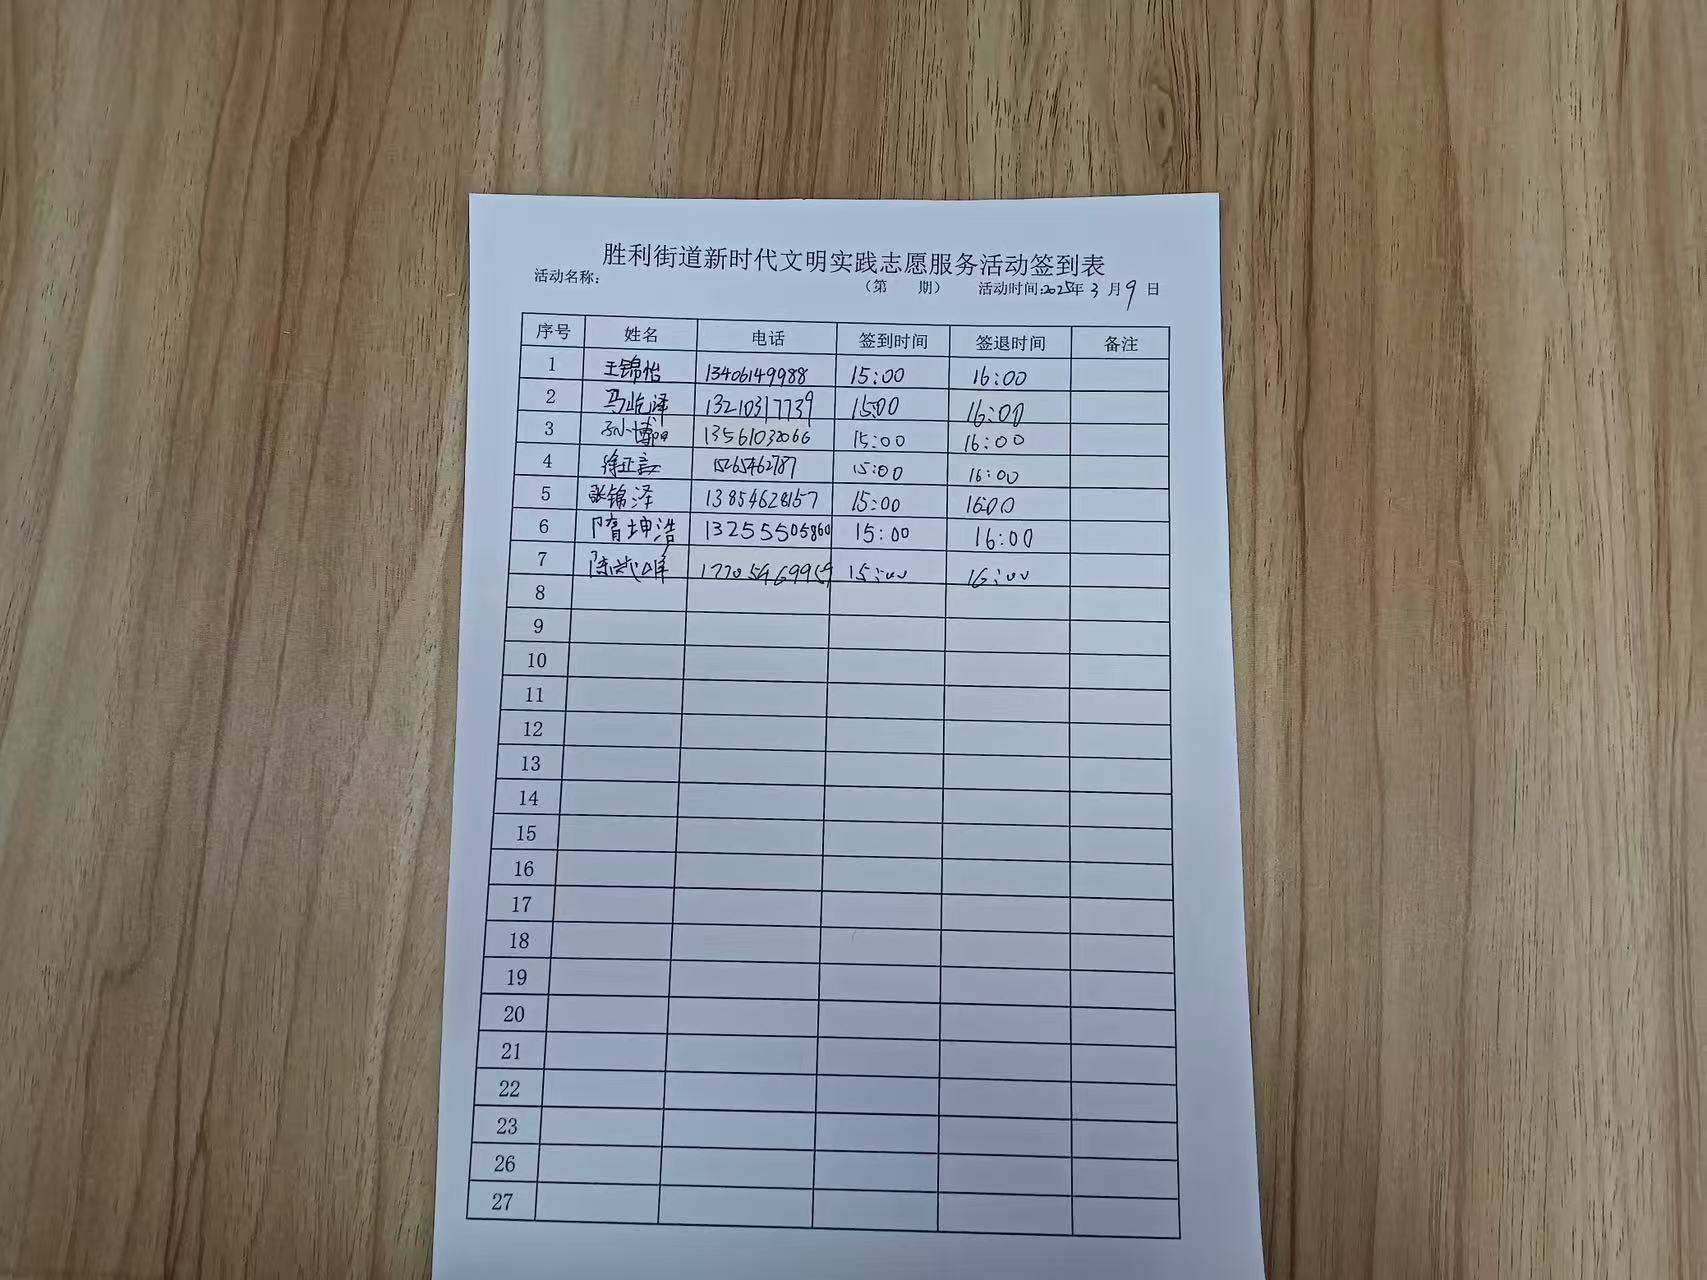 胜利街道新时代文明实践志愿服务活动签到表
活动名称: （第 期） 活动时间:2025年 3 月 9 日
序号 姓名 电话 签到时间 签退时间 备注
1 王锦怡 13406149988 15:00 16:00
2 马屹泽 13210317739 15:00 16:00
3 孙博 13561032066 15:00 16:00
4 徐正 15265462787 15:00 16:00
5 张锦泽 13854628157 15:00 16:00
6 隋坤浩 13255505860 15:00 16:00
7 陈 峰 17705469959 15:00 16:00
8
9
10
11
12
13
14
15
16
17
18
19
20
21
22
23
26
27